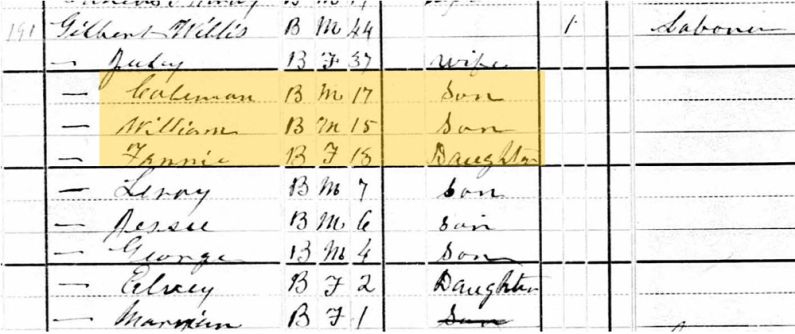 191 Gilbert Willis B M 44 1 Laborer
— Judy B F 37 Wife
— Coleman B M 17 Son
— William B M 15 Son
— Fannie B F 18 Daughter
— Leroy B M 7 Son
— Jessee B M 6 Son
— George B M 4 Son
— B F 2 Daughter
— B F 1 Son